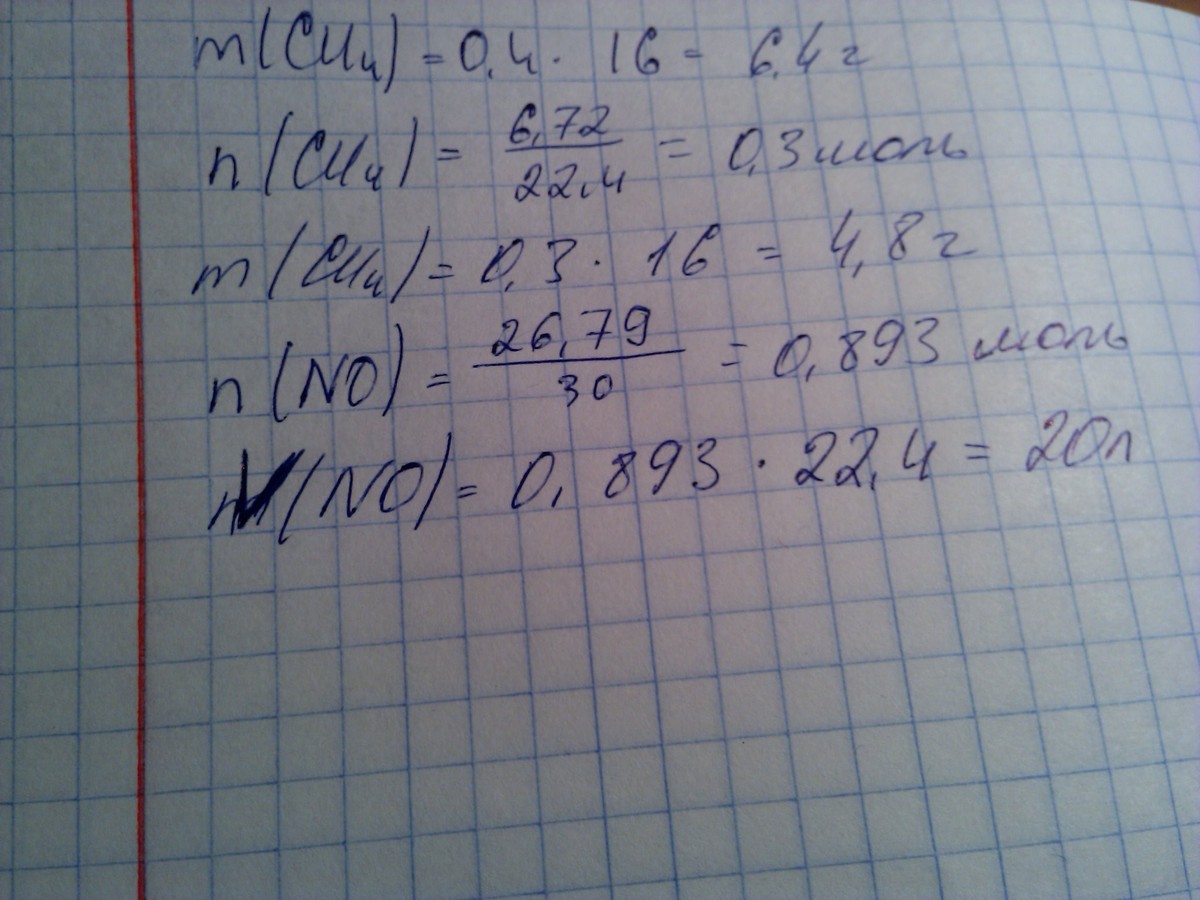 m(CH₄) = 0,4 · 16 = 6,4 г
n(CH₄) = 6,72/22,4 = 0,3 моль
m(CH₄) = 0,3 · 16 = 4,8 г
n(NO) = 26,79/30 = 0,893 моль
V(NO) = 0,893 · 22,4 = 20л